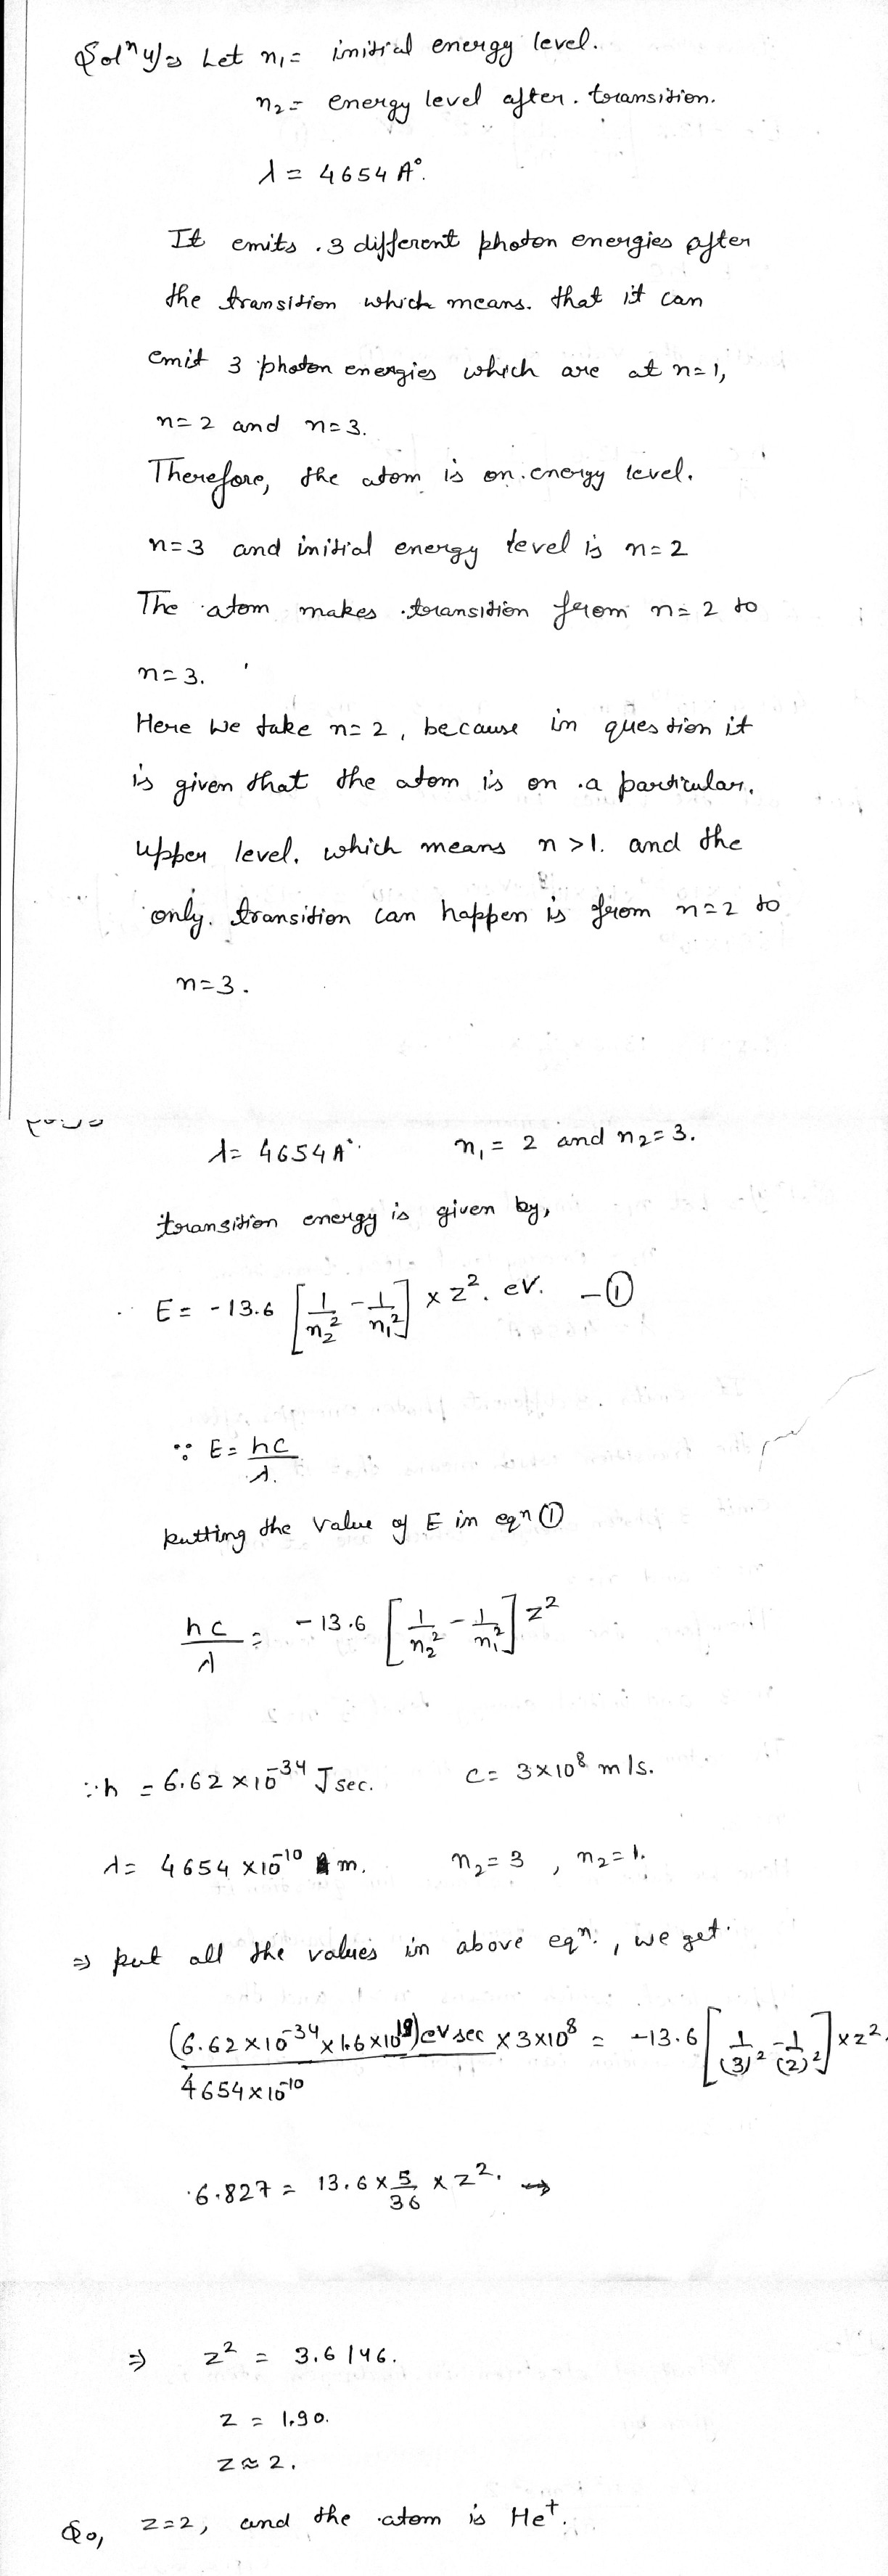 Solⁿ 4) ⇒ Let n₁ = initial energy level.
n₂ = energy level after. transition.
λ = 4654 A°.
It emits . 3 different photon energies after
the transition which means. that it can
emit 3 photon energies which are at n=1,
n=2 and n=3.
Therefore, the atom is on. energy level.
n=3 and initial energy level is n=2
The atom makes .transition from n=2 to
n=3.
Here we take n=2, because in question it
is given that the atom is on .a particular.
upper level. which means n>1. and the
only. transition can happen is from n=2 to
n=3.
λ= 4654 A°. n₁ = 2 and n₂=3.
transition energy is given by,
E = -13.6 [1/n₂² - 1/n₁²] × z². eV. -①
∵ E = hc/λ.
putting the value of E in eqn ①
hc/λ = -13.6 [1/n₂² - 1/n₁²] z²
∵ h = 6.62 × 10⁻³⁴ J sec. c = 3×10⁸ m/s.
λ= 4654 ×10⁻¹⁰ m. n₂=3 , n₂=1.
⇒ put all the values in above eqⁿ. , we get.
(6.62×10⁻³⁴×1.6×10¹⁹) eV sec × 3×10⁸ / 4654×10⁻¹⁰ = -13.6 [1/(3)² - 1/(2)²] × z².
6.827 = 13.6 × 5/36 × z². →
⇒ z² = 3.6146.
z = 1.90.
z ≈ 2.
So, z=2, and the atom is He⁺.